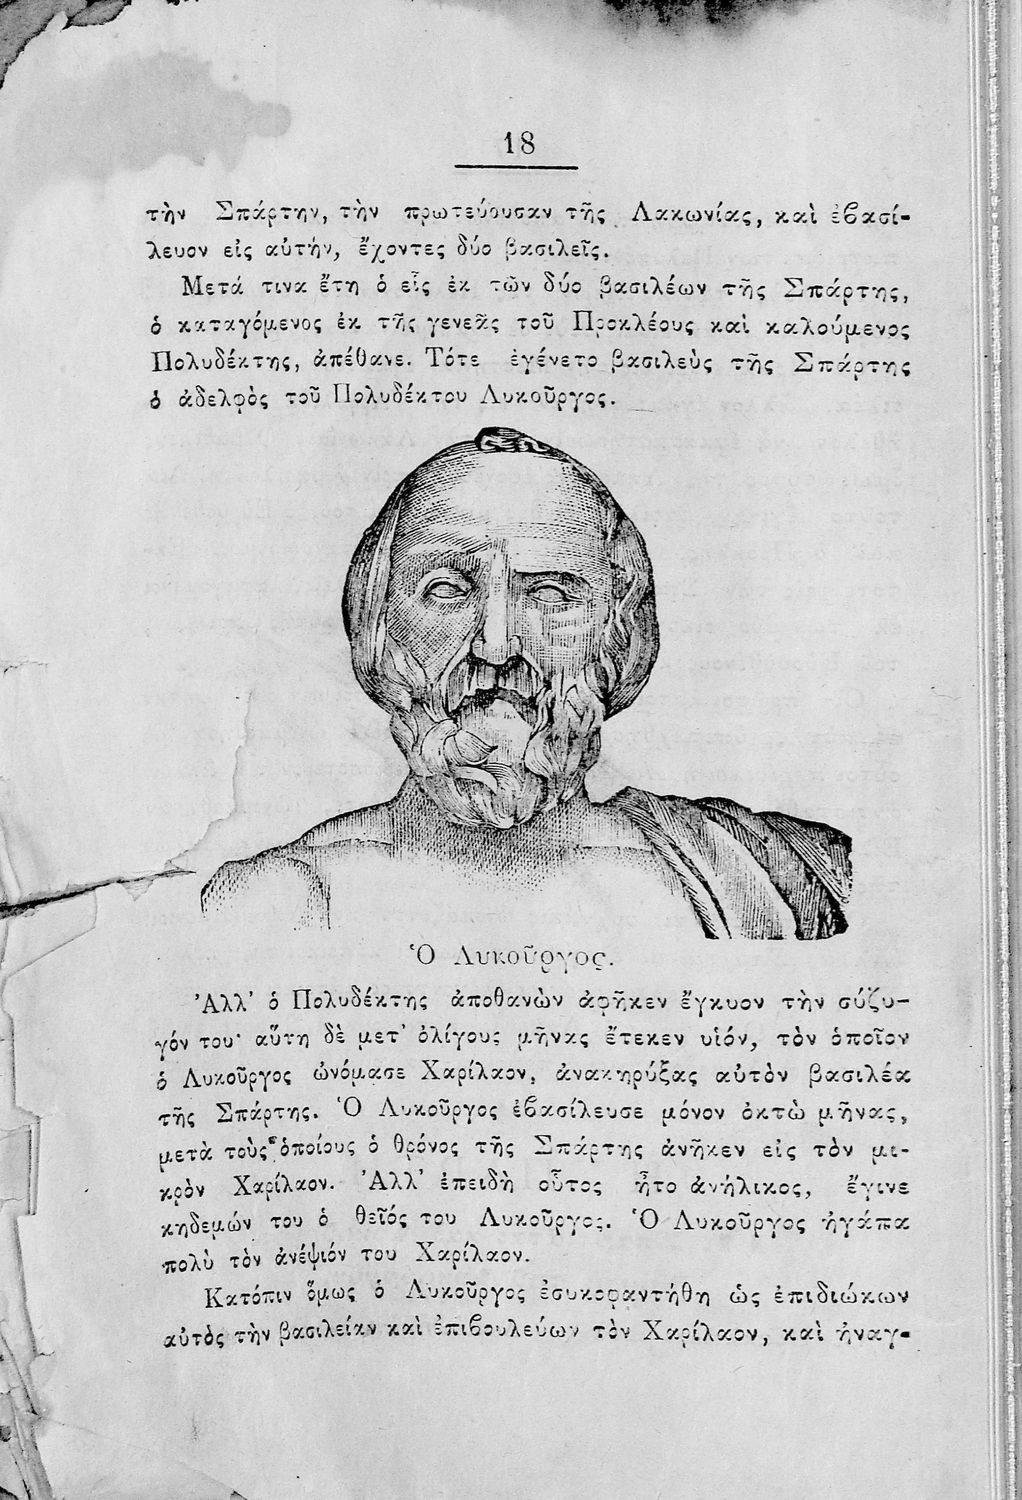 18
τὴν Σπάρτην, τὴν πρωτεύουσαν τῆς Λακωνίας, καὶ ἐβασί-
λευον εἰς αὐτήν, ἔχοντες δύο βασιλεῖς.
Μετά τινα ἔτη ὁ εἷς ἐκ τῶν δύο βασιλέων τῆς Σπάρτης,
ὁ καταγόμενος ἐκ τῆς γενεᾶς τοῦ Προκλέους καὶ καλούμενος
Πολυδέκτης, ἀπέθανε. Τότε ἐγένετο βασιλεὺς τῆς Σπάρτης
ὁ ἀδελφὸς τοῦ Πολυδέκτου Λυκοῦργος.
Ὁ Λυκοῦργος.
Ἀλλ' ὁ Πολυδέκτης ἀποθανὼν ἀφῆκεν ἔγκυον τὴν σύζυ-
γόν του· αὕτη δὲ μετ' ὀλίγους μῆνας ἔτεκεν υἱόν, τὸν ὁποῖον
ὁ Λυκοῦργος ὠνόμασε Χαρίλαον, ἀνακηρύξας αὐτὸν βασιλέα
τῆς Σπάρτης. Ὁ Λυκοῦργος ἐβασίλευσε μόνον ὀκτὼ μῆνας,
μετὰ τοὺς ὁποίους ὁ θρόνος τῆς Σπάρτης ἀνῆκεν εἰς τὸν μι-
κρὸν Χαρίλαον. Ἀλλ' ἐπειδὴ οὗτος ἦτο ἀνήλικος, ἔγινε
κηδεμών του ὁ θεῖός του Λυκοῦργος. Ὁ Λυκοῦργος ἠγάπα
πολὺ τὸν ἀνέψιόν του Χαρίλαον.
Κατόπιν ὅμως ὁ Λυκοῦργος ἐσυκοφαντήθη ὡς ἐπιδιώκων
αὐτὸς τὴν βασιλείαν καὶ ἐπιβουλεύων τὸν Χαρίλαον, καὶ ἠναγ-